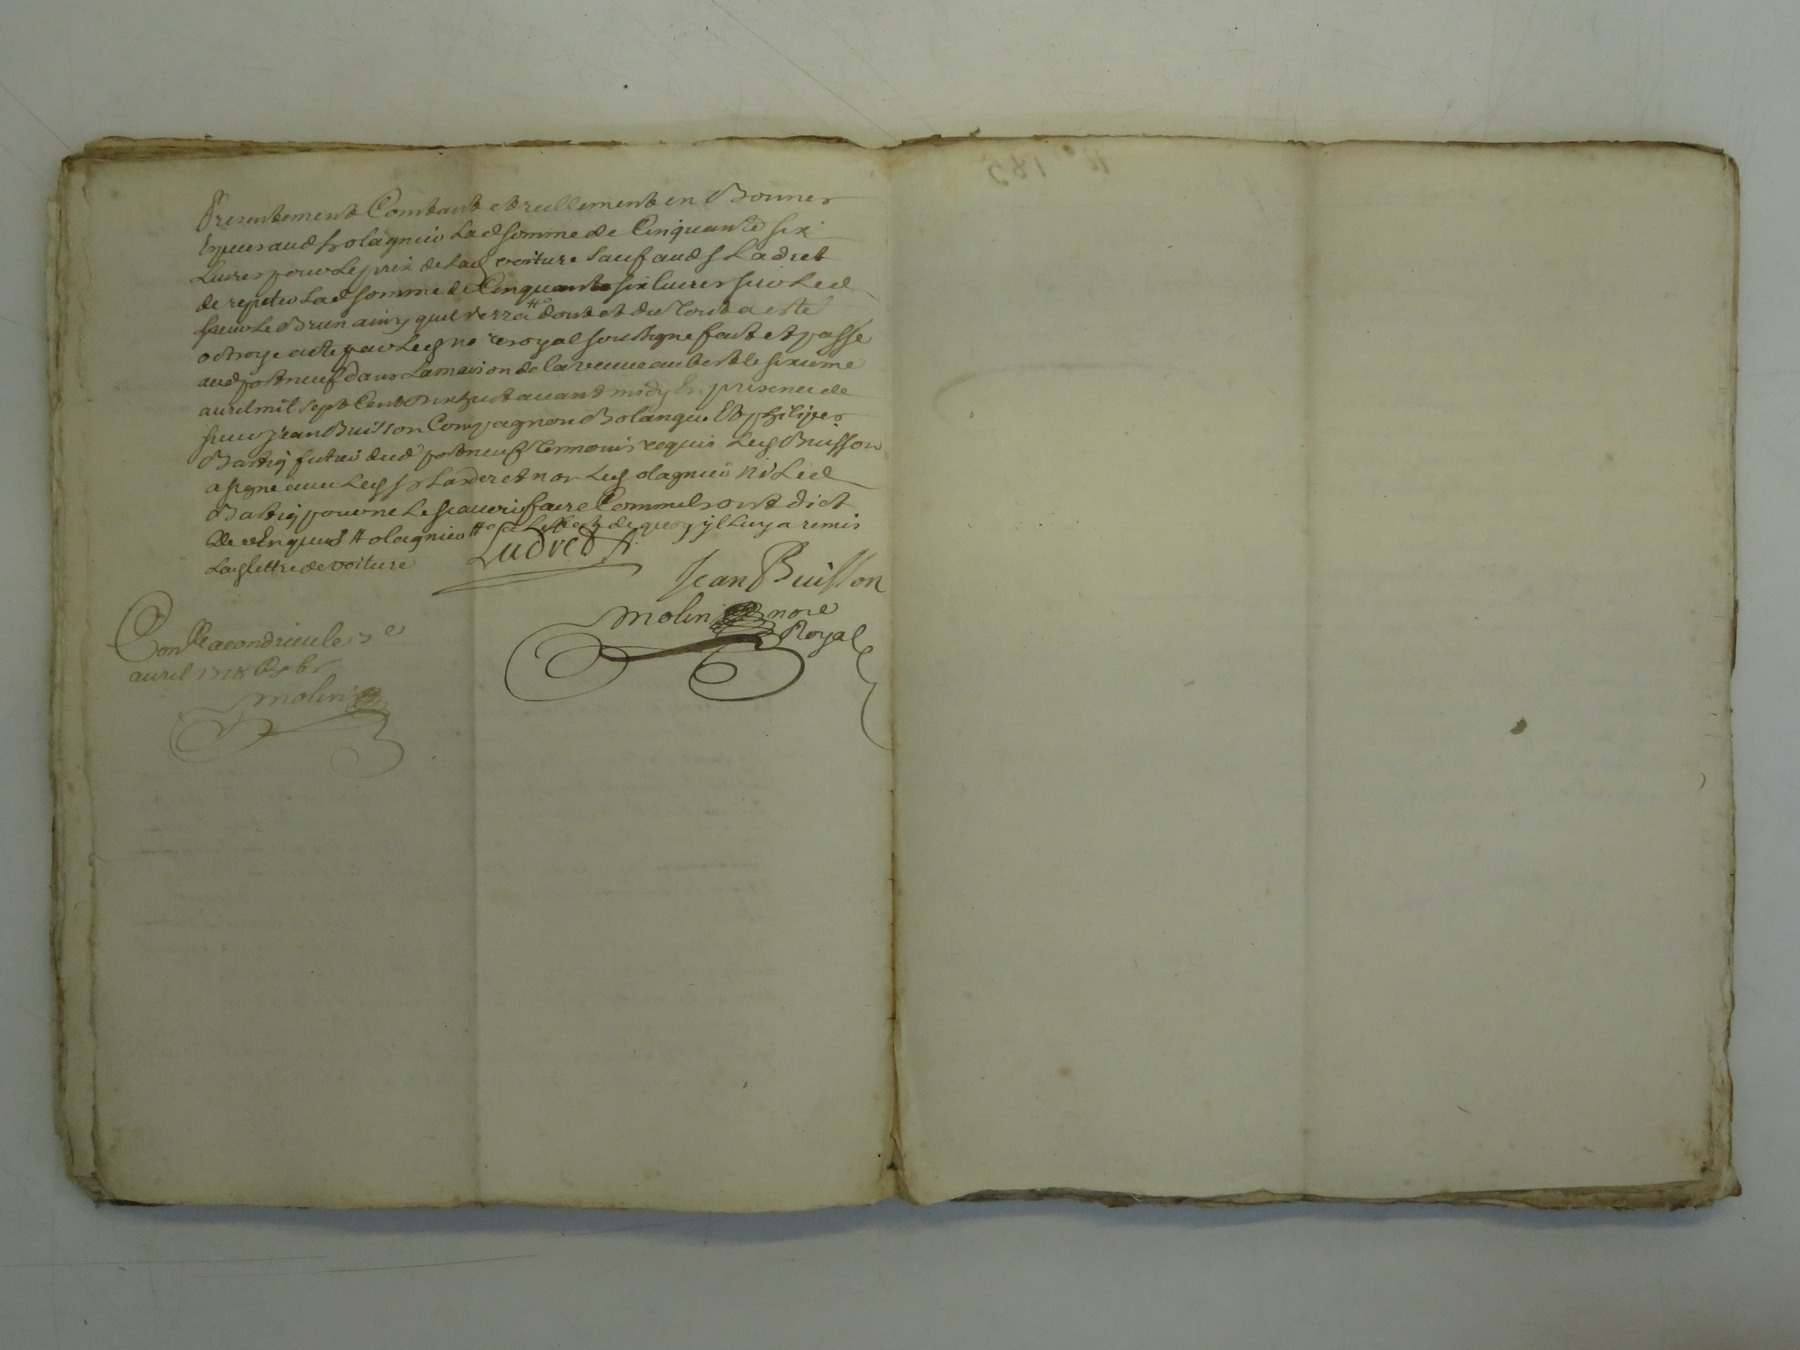 Presentement Contant et reellement en Bonnes
Espeses aud sr olagnier lad somme de Cinquante six
Livres pour le prix de lad voiture sauf aud s Ladret
de repeter lad somme de Cinquante six livres sur led
sieur Le Brun ainsy quil verra dont et du tout a este
octroye acte par led no re royal soussigne fait et passe
aud portneuf dans la maison de la veuve aubert le sixieme
avril mil sept Cent dix huit avant midy En presence de
sieur jean Buisson Compagnon Bolanger Et philipes
Bastiy futier dud portneuf temoins requis Led Buisson
a signe avec led sr Ladret et non led olagnier ni led
Bastiy pour ne le scavoir faire Comme ils ont dict
de ce Enquis olagnier de quoy yl luy a remis
lad lettre de voiture
Ladret
Jean Buisson
Molin no re
Royal
Con lle a condrieu le 7 e
avril 1718
Molin
N o 185